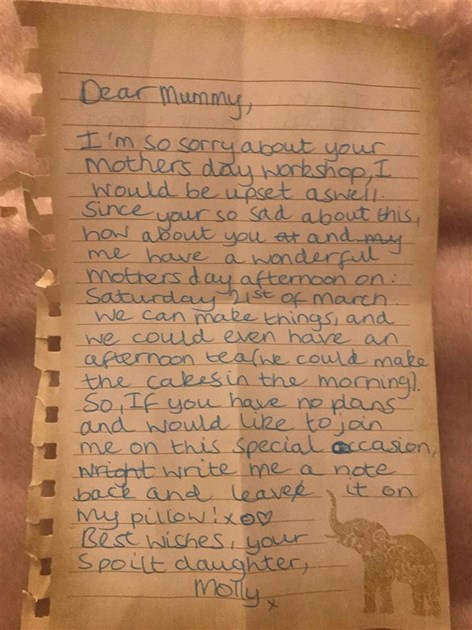 Dear Mummy,
I'm so sorry about your
mothers day workshop, I
would be upset aswell.
Since your so sad about this,
how about you at and my
me have a wonderful
mothers day afternoon on:
Saturday 21st of march.
We can make things, and
we could even have an
afternoon tea(we could make
the cakes in the morning).
So, If you have no plans
and would like to join
me on this special occasion,
wright write me a note
back and leave it on
my pillow! xo♡
Best wishes, your
Spoilt daughter,
Molly x